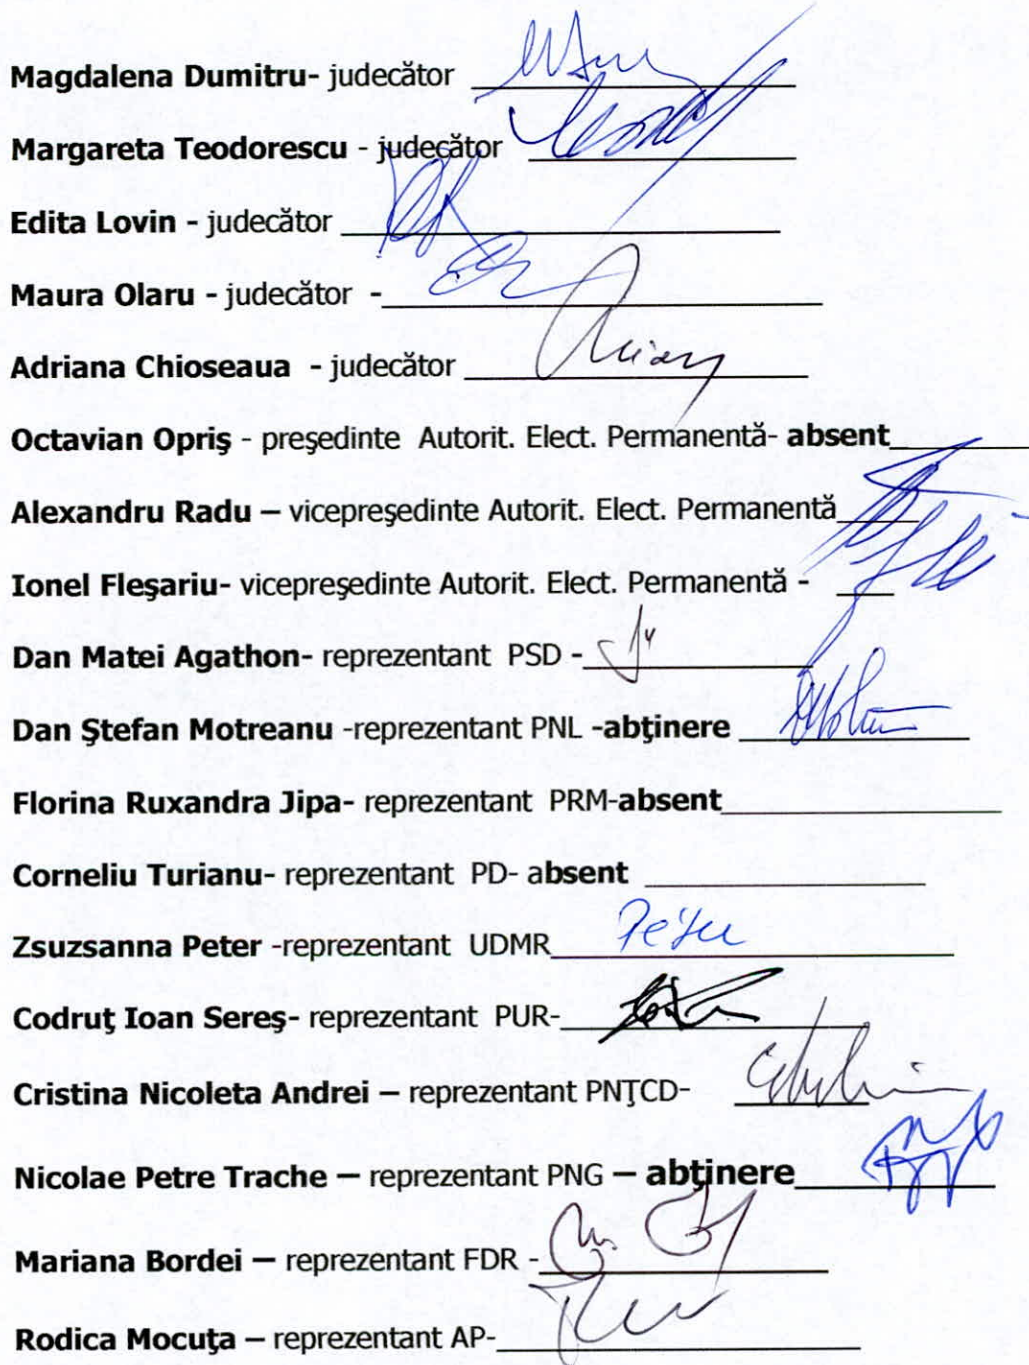 Magdalena Dumitru- judecător
Margareta Teodorescu - judecător
Edita Lovin - judecător
Maura Olaru - judecător -
Adriana Chioseaua - judecător
Octavian Opriş - preşedinte Autorit. Elect. Permanentă- absent
Alexandru Radu – vicepreşedinte Autorit. Elect. Permanentă
Ionel Fleşariu- vicepreşedinte Autorit. Elect. Permanentă -
Dan Matei Agathon- reprezentant PSD -
Dan Ştefan Motreanu -reprezentant PNL -abţinere
Florina Ruxandra Jipa- reprezentant PRM-absent
Corneliu Turianu- reprezentant PD- absent
Zsuzsanna Peter -reprezentant UDMR
Codruţ Ioan Sereş- reprezentant PUR-
Cristina Nicoleta Andrei – reprezentant PNŢCD-
Nicolae Petre Trache – reprezentant PNG – abţinere
Mariana Bordei – reprezentant FDR -
Rodica Mocuţa – reprezentant AP-